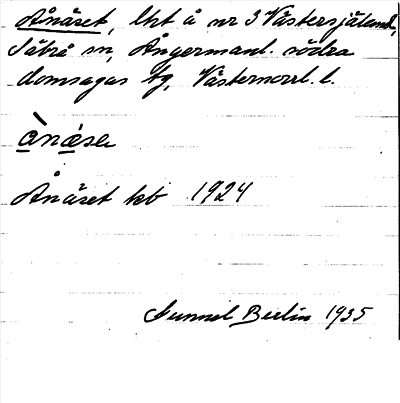 Ånäset, lht å nr 3 Västersjäland,
Säbrå sn, Ångermanl. södra
domsagas tg, Västernorrl. l.
ànǽsɛ
Ånäset kb 1924
Gunnel Berlin 1935